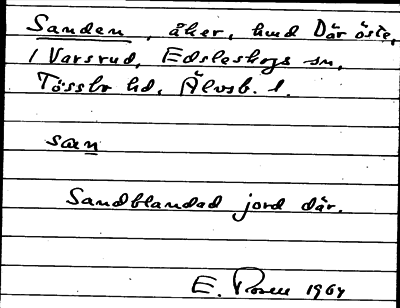 Sanden, åker, hmd Där öste,
i Varsrud, Edsleskogs sn,
Tössbo hd, Älvsb. l.
san
Sandblandad jord där.
E. Rosen 1964